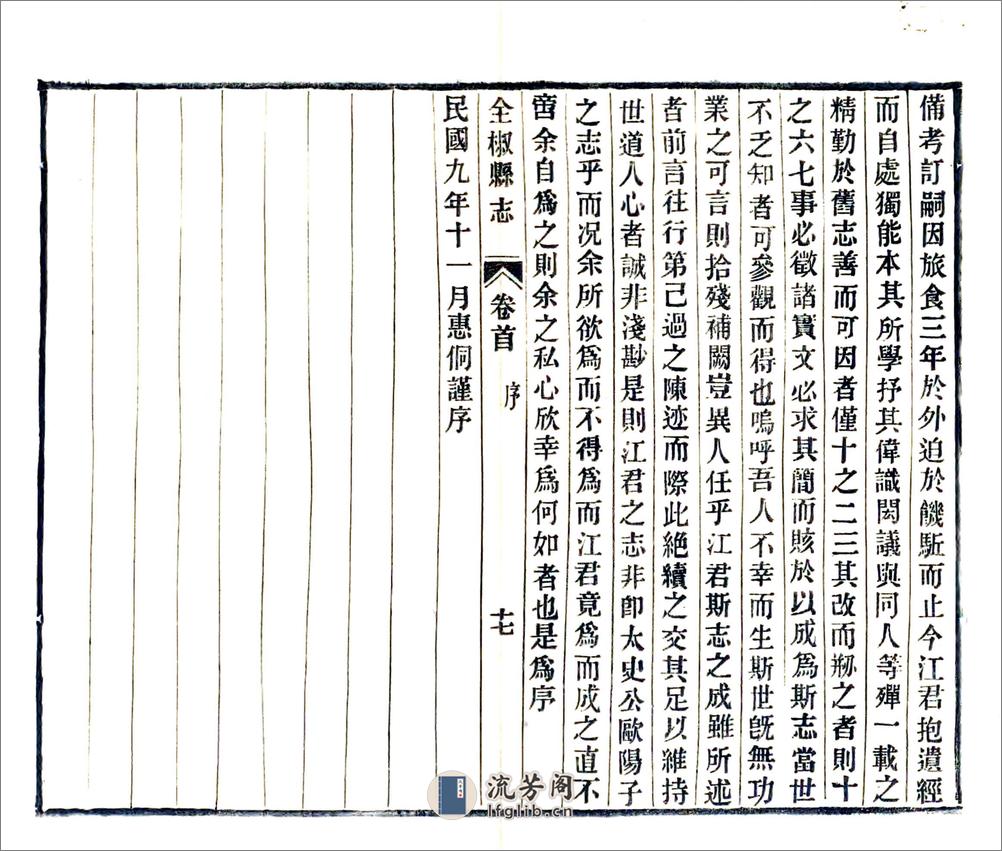 備考訂嗣因旅食三年於外迫於饑駈而止今江君抱遺經
而自處獨能本其所學抒其偉識閎議與同人等殫一載之
精勤於舊志善而可因者僅十之二三其改而刱之者則十
之六七事必徵諸實文必求其簡而賅於以成爲斯志當世
不乏知者可參觀而得也嗚呼吾人不幸而生斯世旣無功
業之可言則拾殘補闕豈異人任乎江君斯志之成雖所述
者前言往行第已過之陳迹而際此絶續之交其足以維持
世道人心者誠非淺尠是則江君之志非卽太史公歐陽子
之志乎而况余所欲爲而不得爲而江君竟爲而成之直不
啻余自爲之則余之私心欣幸爲何如者也是爲序
全椒縣志 卷首 序 十七
民國九年十一月惠侗謹序
流芳阁
lfglib.cn